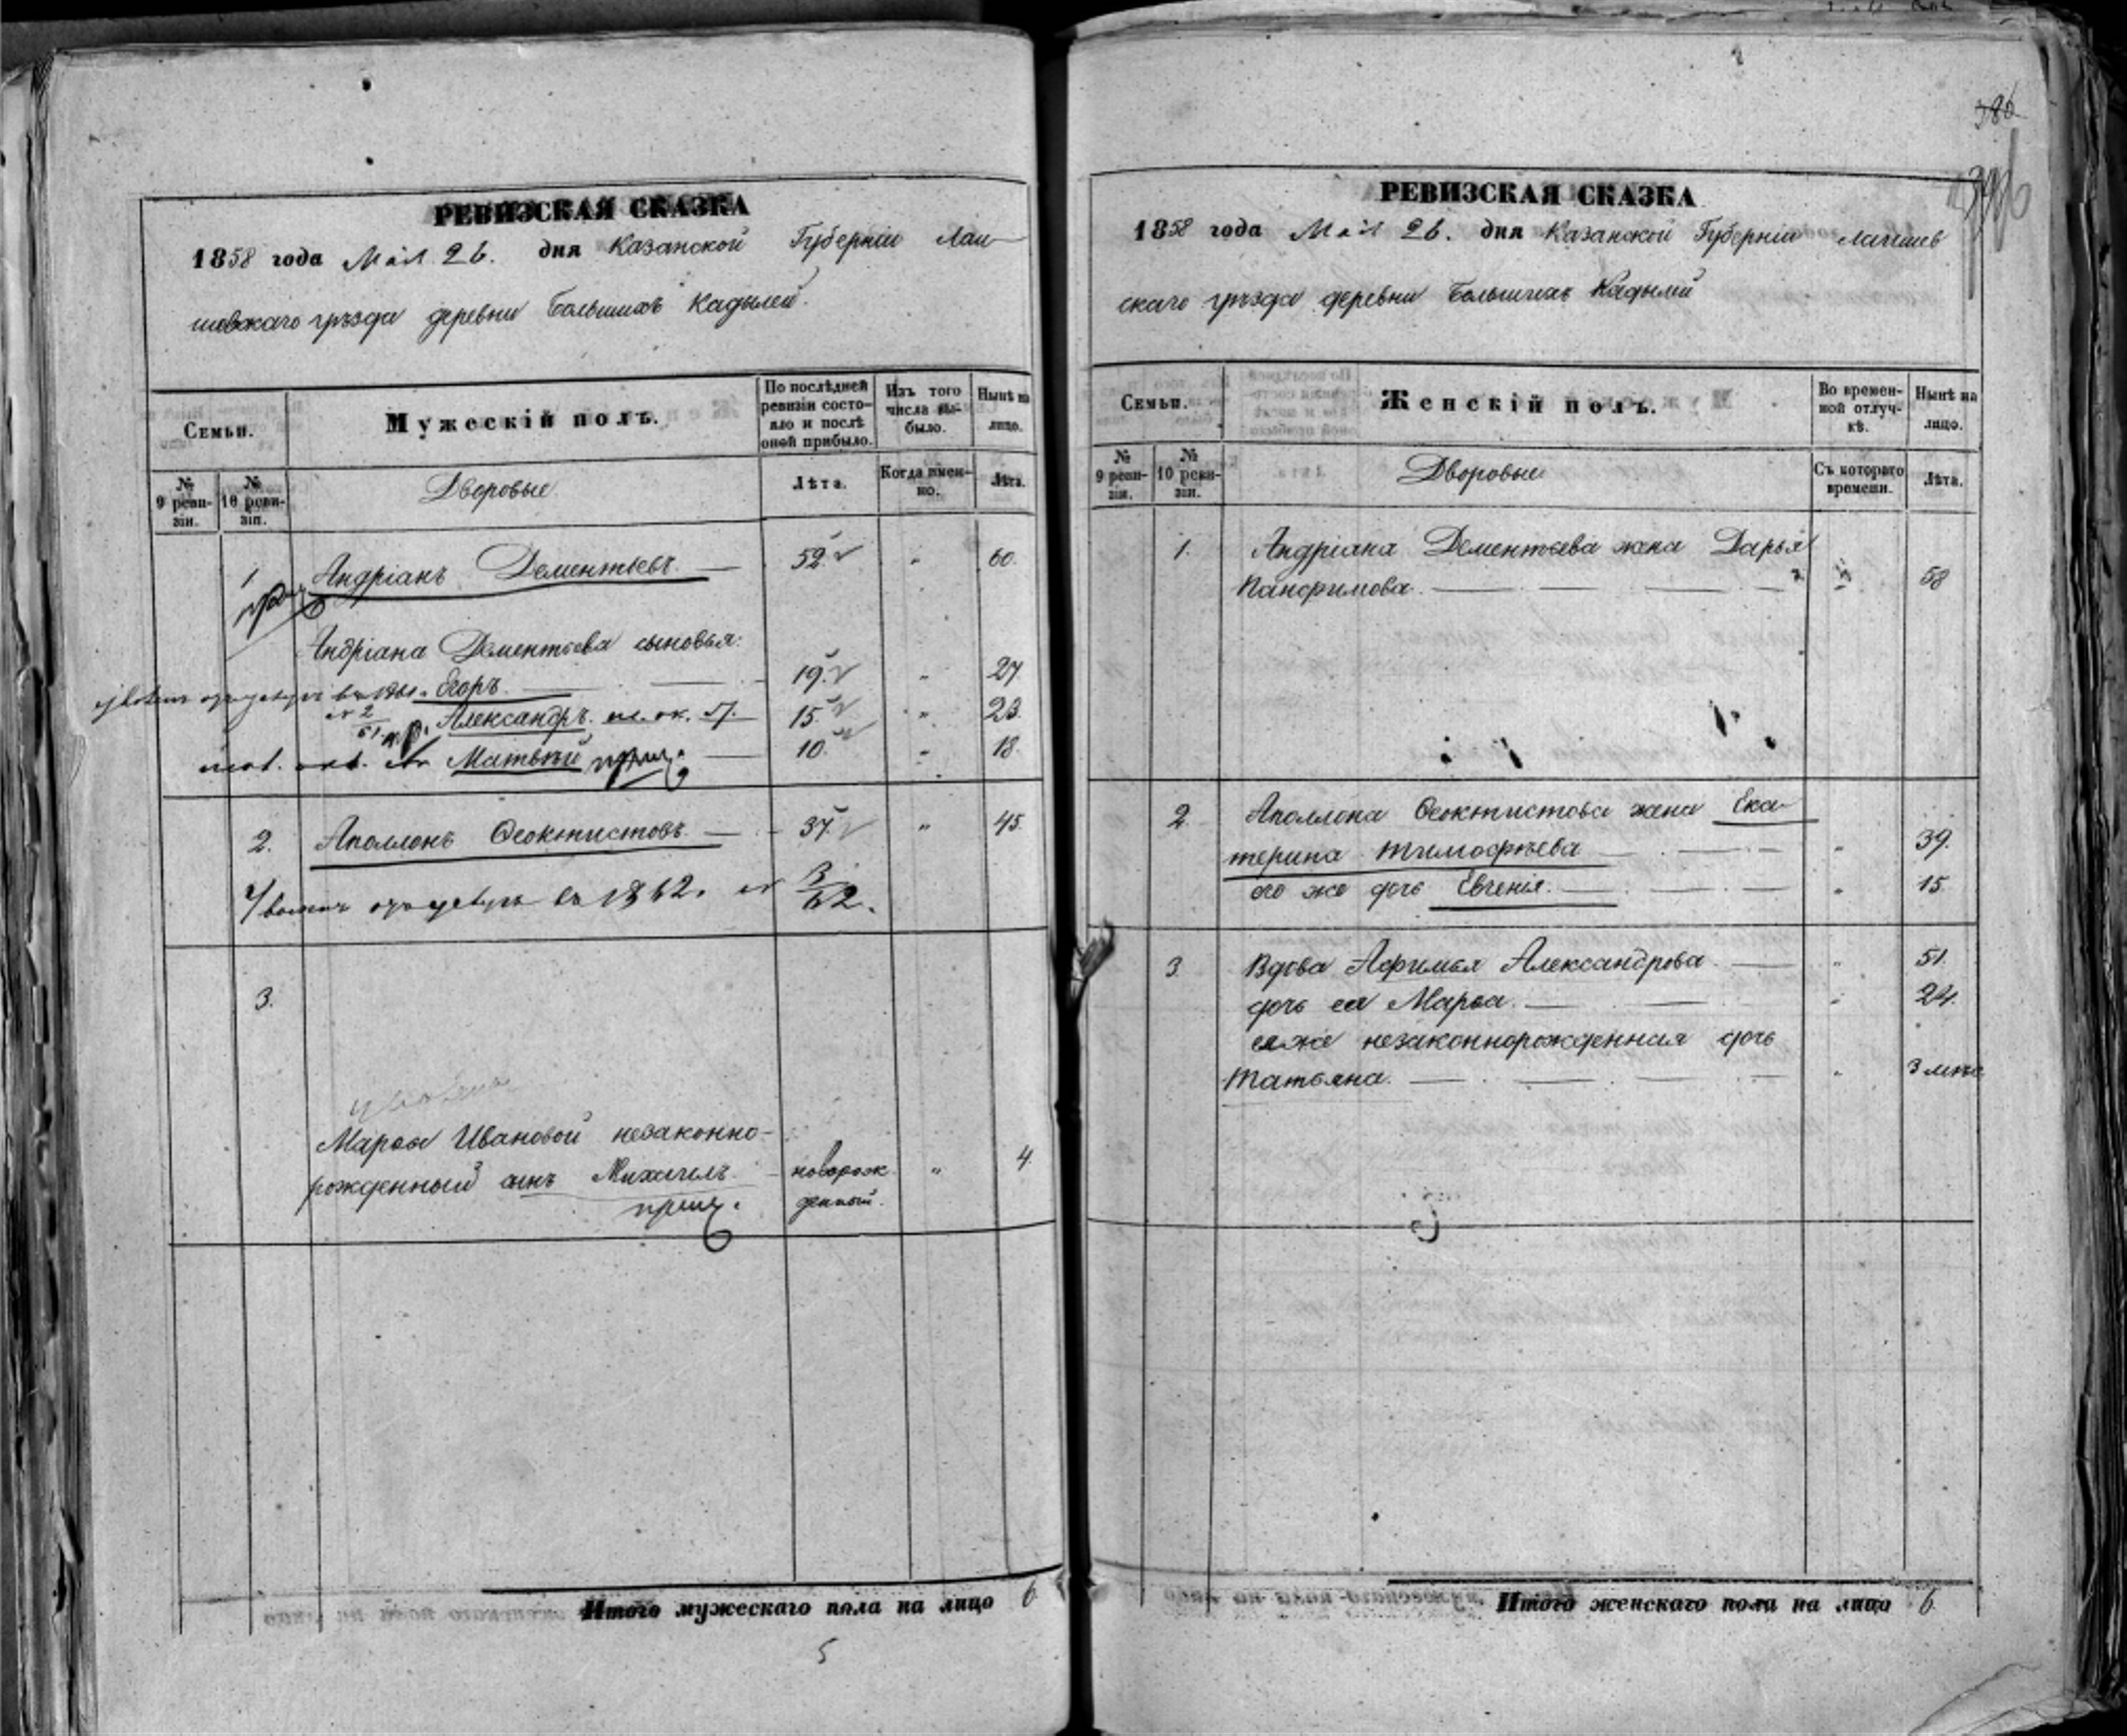 РЕВИЗСКАЯ СКАЗКА
1858 года Мая 26. дня Казанской Губерніи Лаи-
шевскаго уѣзда деревни Большихъ Кадылей.
Семьи.
Мужескій полъ.
По послѣдней ревизіи состояло и послѣ оной прибыло.
Изъ того числа выбыло.
Нынѣ на лицо.
№ 9 ревизіи.
№ 10 ревизіи.
Дворовые.
Лѣта.
Когда именно.
Лѣта.
1 Андріанъ Дементьевъ. 52. " 60.
Андріана Дементьева сыновья:
Егоръ. 19. " 27
Александръ. 15. " 23.
Матвѣй 10. " 18.
2. Аполлонъ Ѳеоктистовъ. 37. " 45.
въ 1862. 3/62.
3.
уволена
Марьи Ивановой незаконно-
рожденный сынъ Михаилъ. новорож " 4.
денный.
Итого мужескаго пола на лицо 6
5
386
РЕВИЗСКАЯ СКАЗКА
1858 года Мая 26. дня Казанской Губерніи Лаишев
скаго уѣзда деревни Большихъ Кадылей
Семьи.
Женскій полъ.
Во временной отлучкѣ.
Нынѣ на лицо.
№ 9 ревизіи.
№ 10 ревизіи.
Дворовые
Съ котораго времени.
Лѣта.
1. Андріана Дементьева жена Дарья
Панфимова. " 58
2. Аполлона Ѳеоктистова жена Ека-
терина Тимофѣева " 39.
его же дочь Евгенія. " 15.
3 Вдова Афимья Александрова. " 51.
дочь ея Марья. " 24.
ея же незаконнорожденная дочь
Татьяна. " 3 мѣс
Итого женскаго пола на лицо 6.